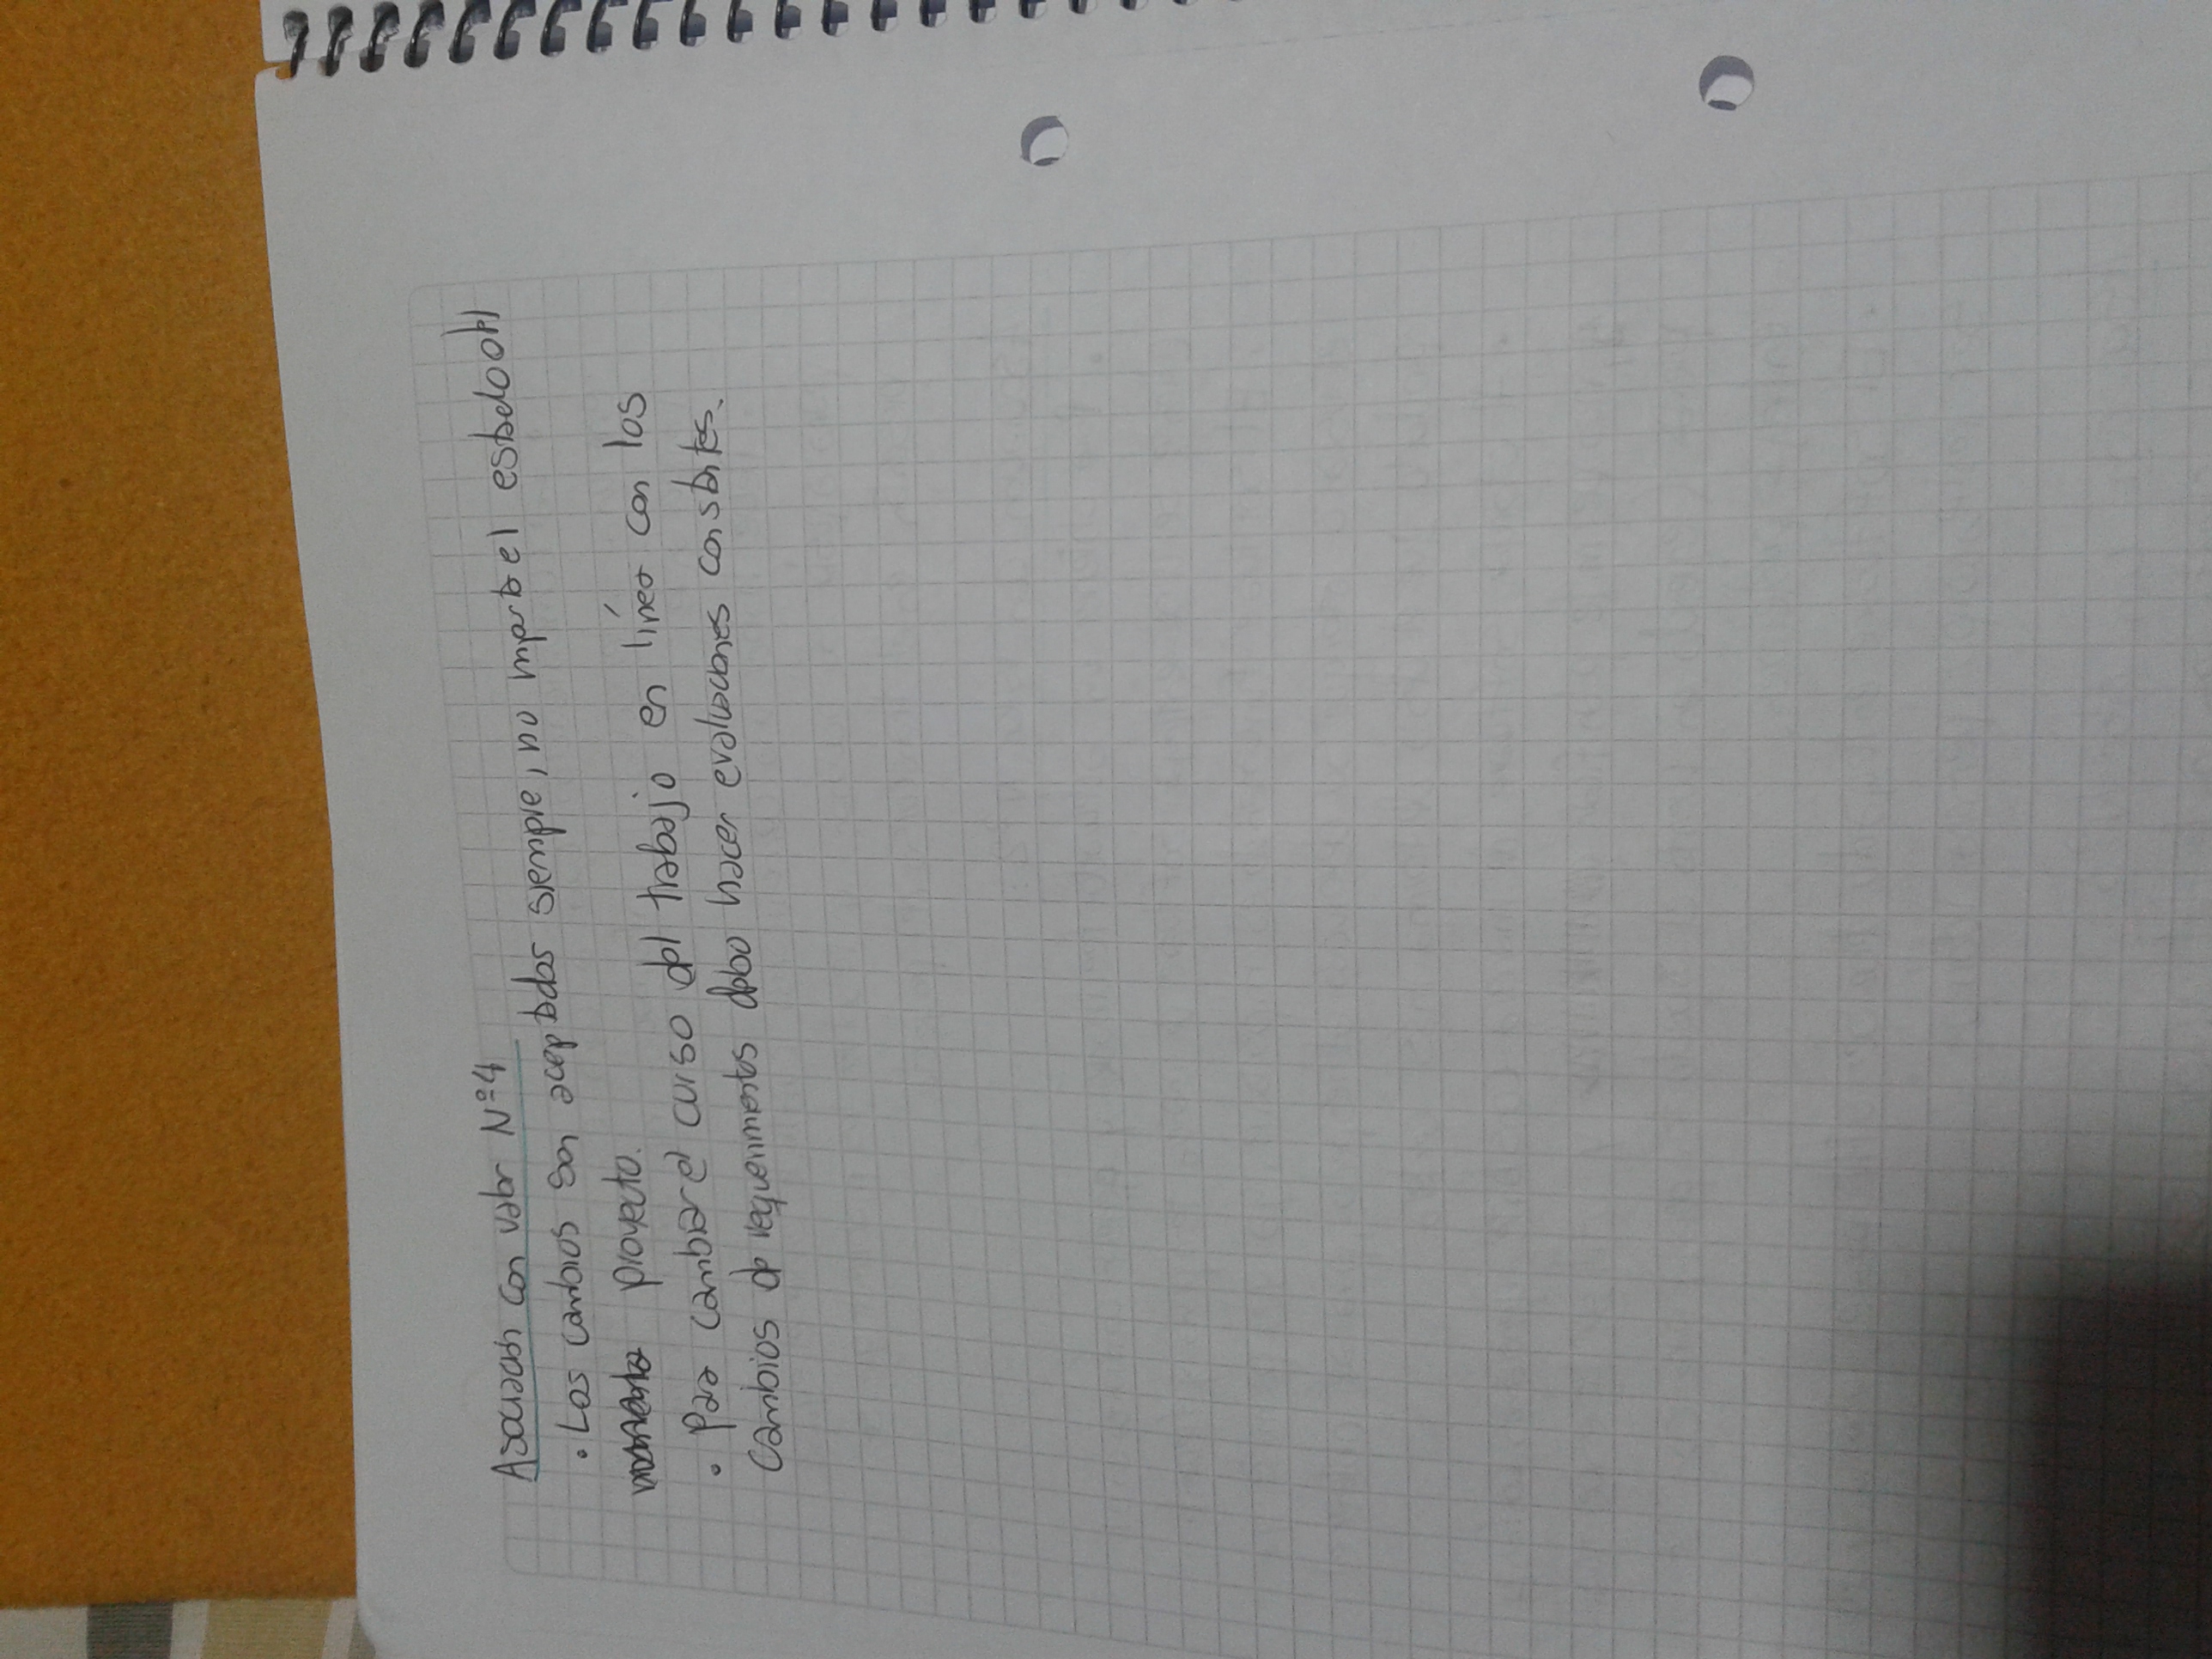 Asociación con valor Nº4
• Los cambios son aceptados siempre, no importa el estado del
proyecto.
• Para cambiar el curso del trabajo en línea con los
cambios de requerimientos debo hacer evaluaciones constantes.